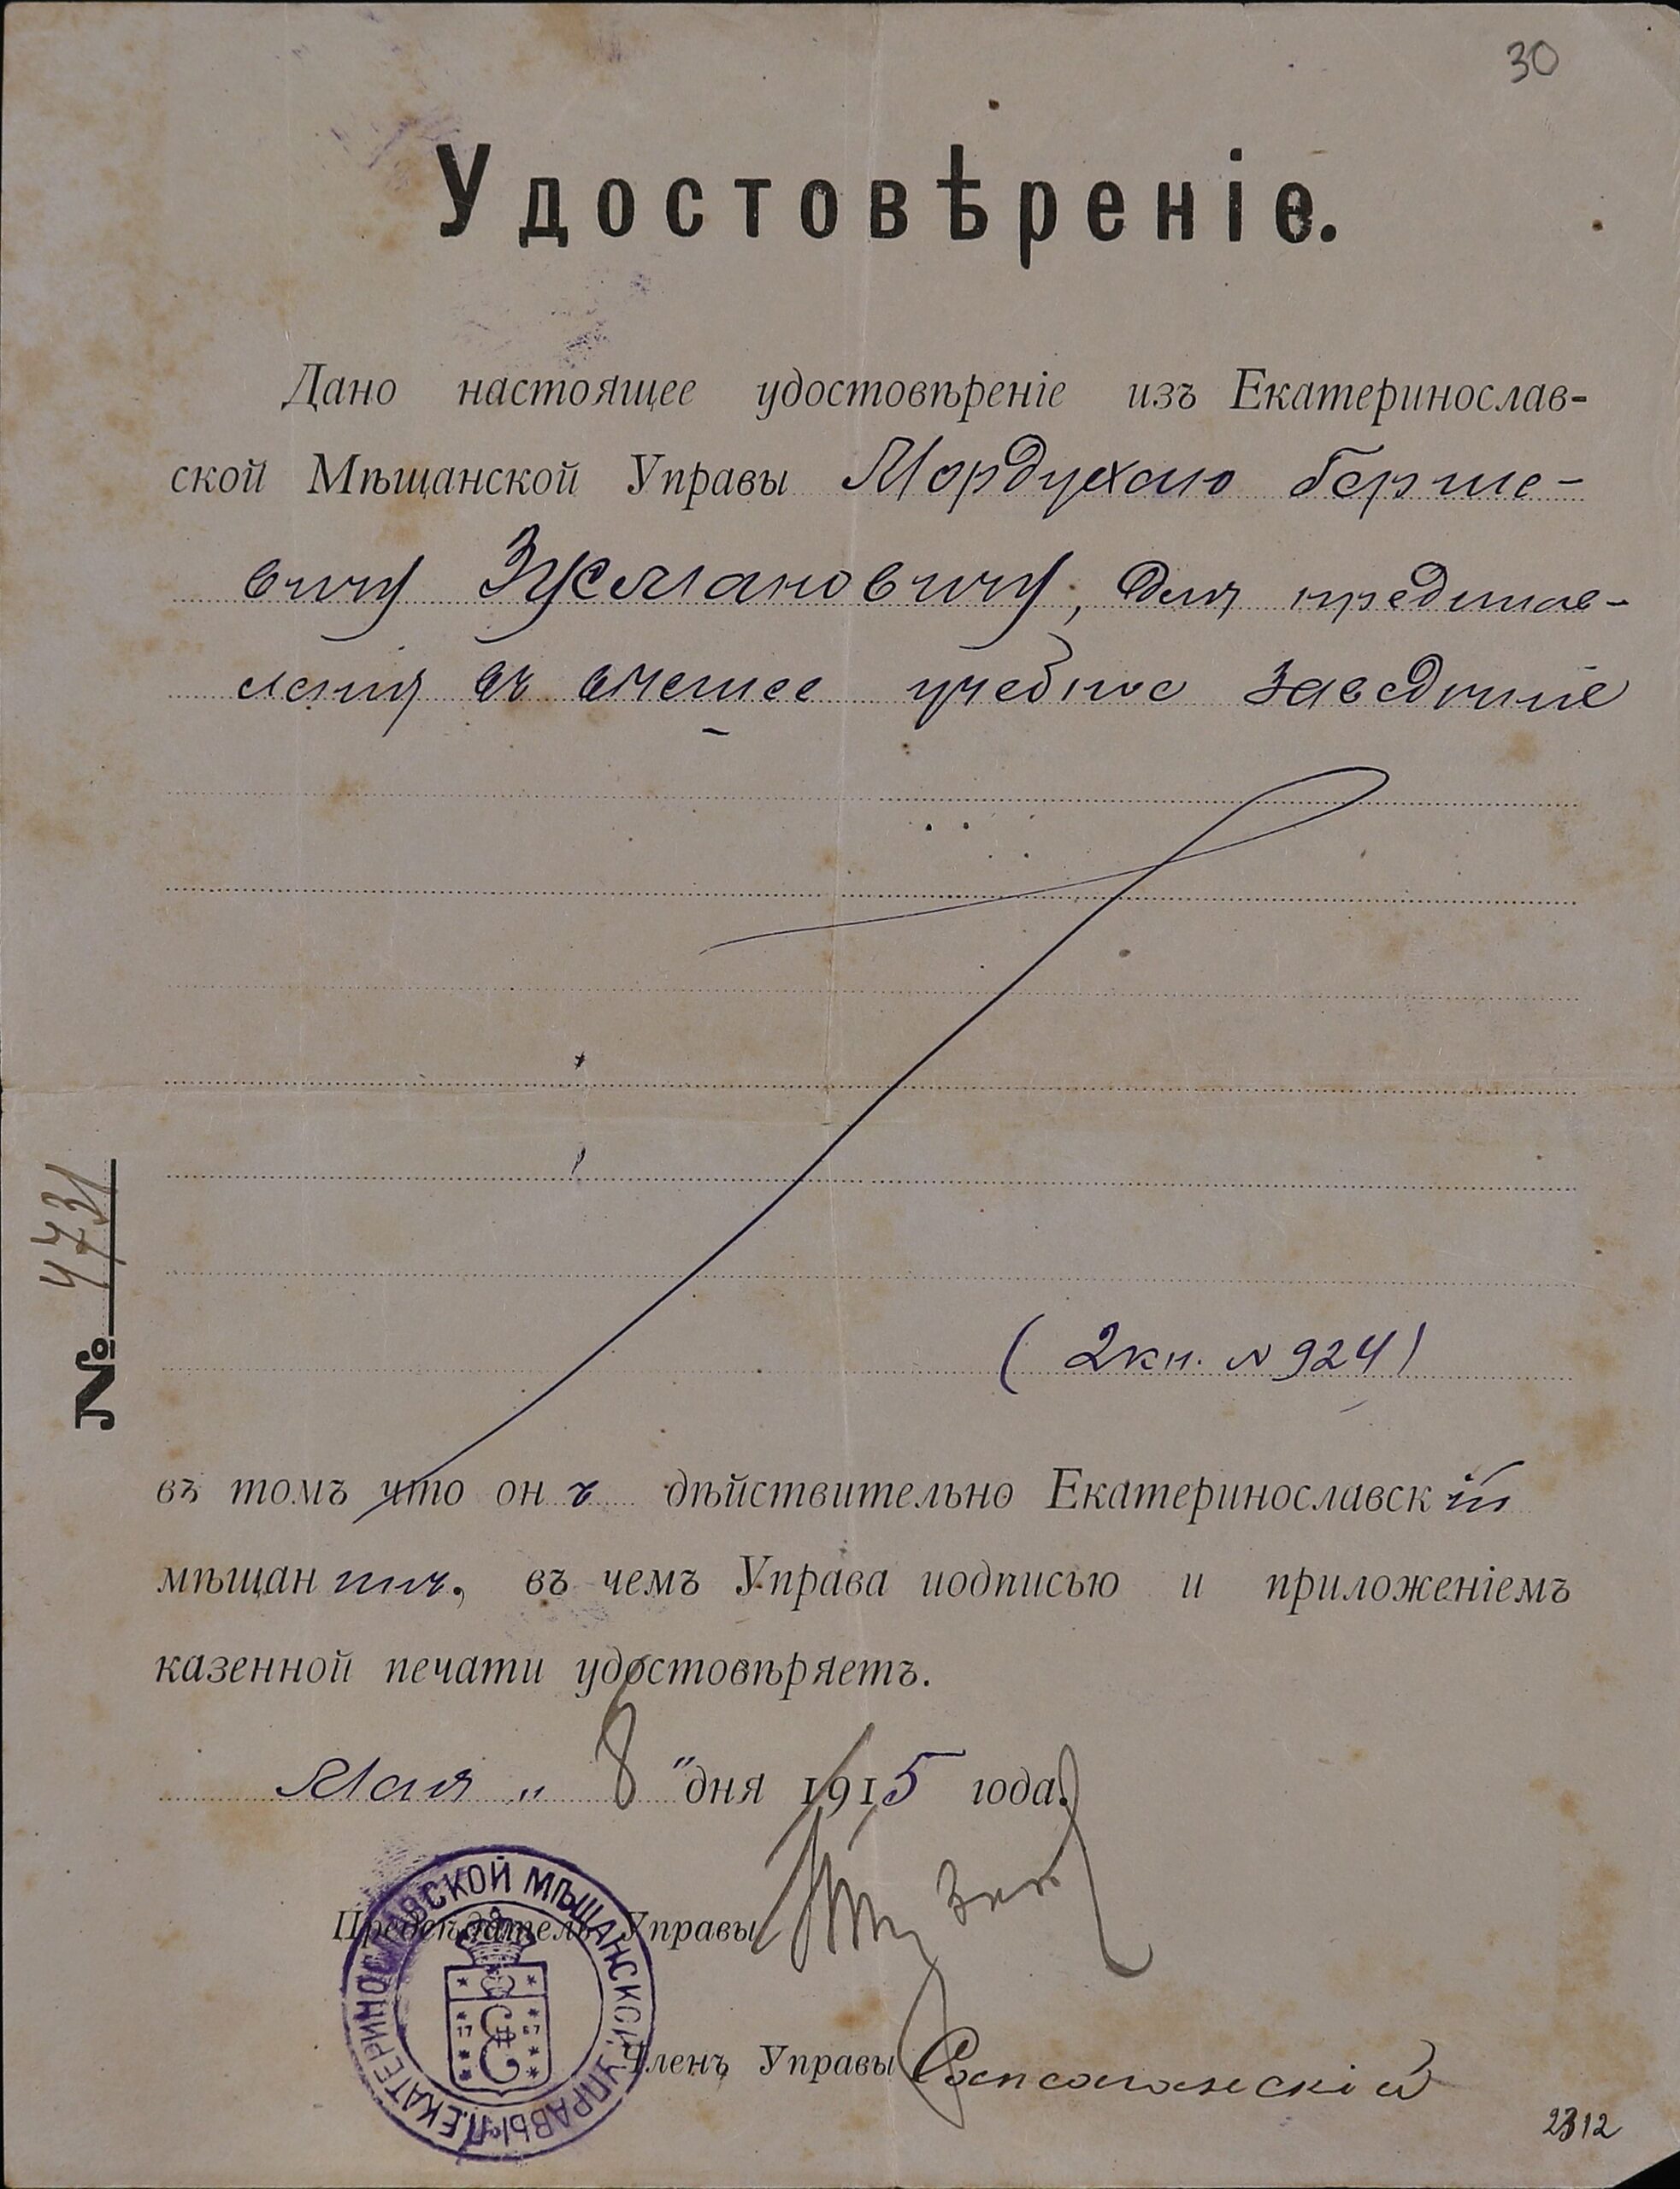 30
Удостовѣреніе.
Дано настоящее удостовѣреніе изъ Екатеринослав-
ской Мѣщанской Управы Мордухаю Берше-
вичу Зусмановичу, для представ-
ленія въ высшее учебное заведеніе
(2 кн. № 924)
№ 4731
въ томъ что онъ дѣйствительно Екатеринославскій
мѣщанинъ, въ чемъ Управа подписью и приложеніемъ
казенной печати удостовѣряетъ.
Мая „ 8 " дня 1915 года.
Предсѣдатель Управы
Членъ Управы
ЕКАТЕРИНОСЛАВСКОЙ МѢЩАНСКОЙ УПРАВЫ
17 87
2312